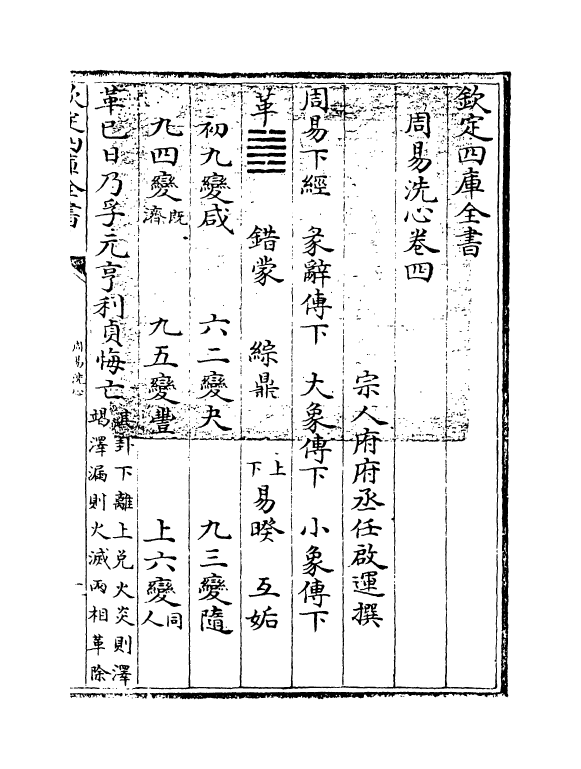 欽定四庫全書
周易洗心卷四
宗人府府丞任啟運撰
周易下經　彖辭傳下　大象傳下　小象傳下
革䷰　錯蒙　綜鼎　上下易睽　互姤
初九變咸　六二變夬　九三變隨
九四變既濟　九五變豐　上六變同人
革巳日乃孚元亨利貞悔亡其卦下離上兑火炎則澤
竭澤漏則火滅兩相革除
欽定四庫全書
周易洗心